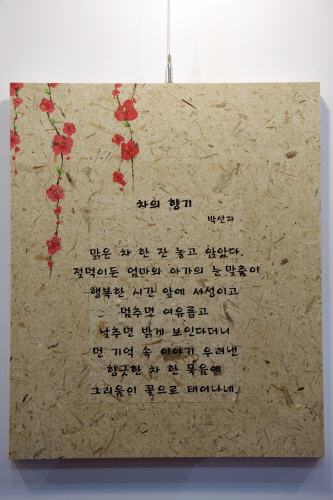 차의 향기
박선자
맑은 차 한 잔 놓고 앉았다.
젖먹이든 엄마와 아가의 눈 맞춤이
행복한 시간 앞에 서성이고
멈추면 여유롭고
낮추면 밝게 보인다더니
먼 기억 속 이야기 우려낸
향긋한 차 한 목음에
그리움이 꽃으로 태어나네.